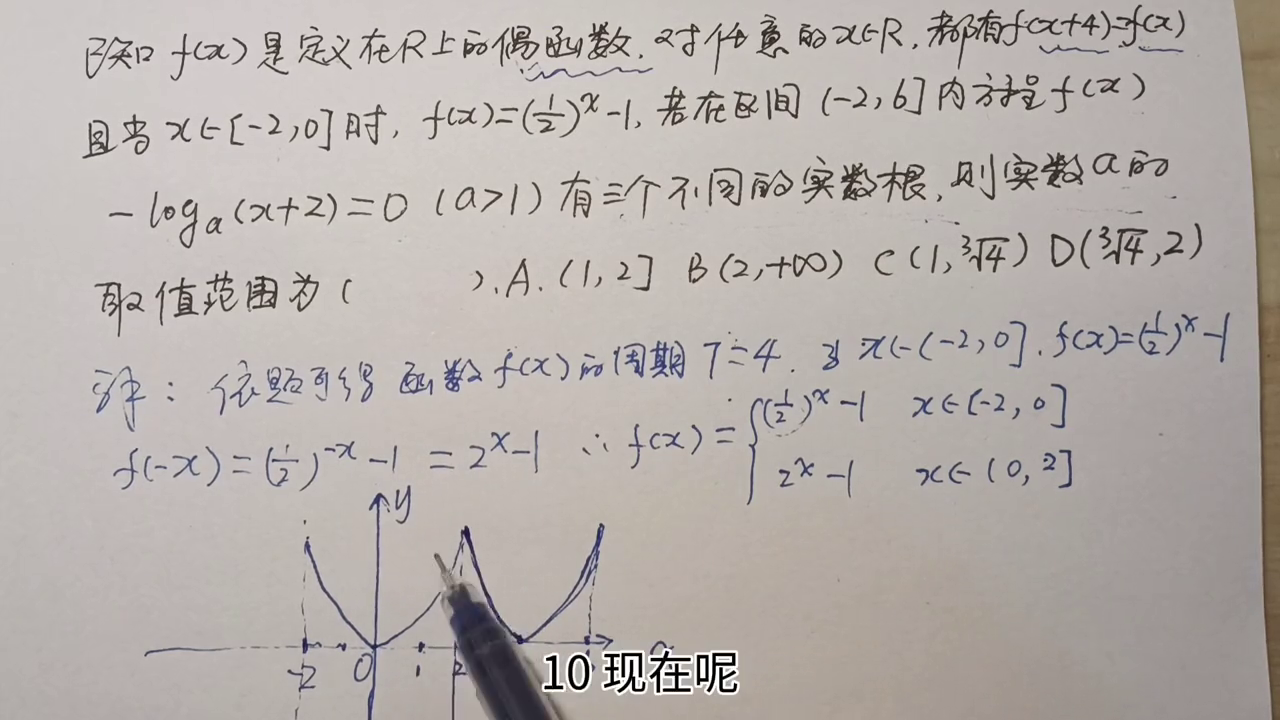 已知 f(x) 是定义在R上的偶函数, 对任意的x∈R, 都有f(x+4)=f(x)
且当 x∈[-2,0]时, f(x)=(1/2)^x-1, 若在区间 (-2,6]内方程f(x)
-log_a(x+2)=0 (a>1) 有三个不同的实数根, 则实数a的
取值范围为( ). A. (1,2] B (2,+∞) C (1,∛4) D(∛4,2)
解: 依题可得 函数f(x)的周期 T=4. 当 x∈(-2,0]. f(x)=(1/2)^x-1
f(-x)=(1/2)^-x-1 =2^x-1 ∴ f(x)={(1/2)^x-1 x∈[-2,0]
2^x-1 x∈(0,2]
y
-2 0 1 2
10 现在呢